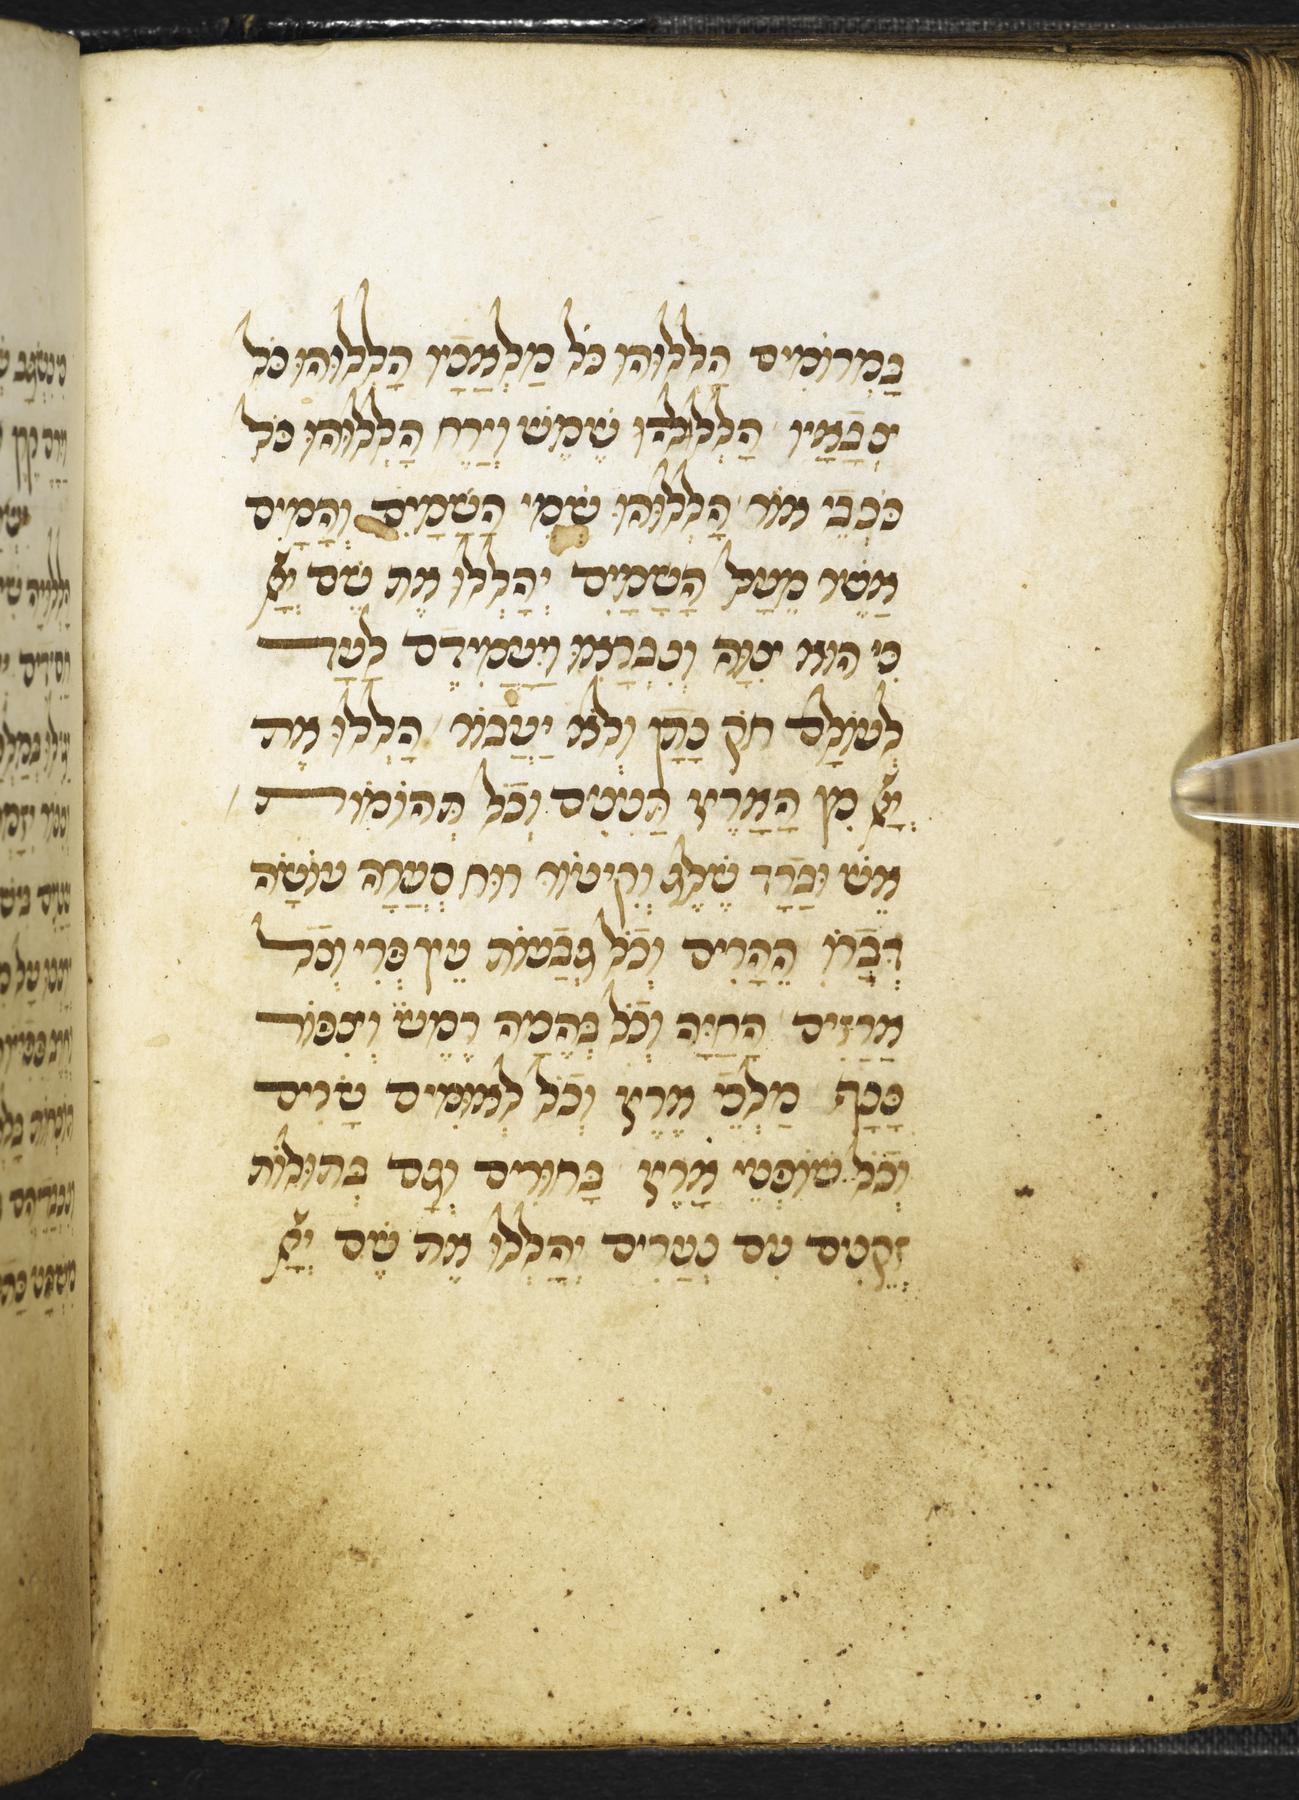 בַּמְרוֹמִים הַלְלוּהוּ כָל מַלְאָכָיו הַלְלוּהוּ כָּל
צְבָאָיו הַלְלוּהוּ שֶׁמֶשׁ וְיָרֵחַ הַלְלוּהוּ כָּל
כֹּכְבֵי אוֹר הַלְלוּהוּ שְׁמֵי הַשָּׁמָיִם וְהַמַּיִם
אֲשֶׁר מֵעַל הַשָּׁמָיִם יְהַלְלוּ אֶת שֵׁם יְיָ
כִּי הוּא צִוָּה וְנִבְרָאוּ וַיַּעֲמִידֵם לָעַד
לְעוֹלָם חֹק נָתַן וְלֹא יַעֲבוֹר הַלְלוּ אֶת
יְיָ מִן הָאָרֶץ תַּנִּינִים וְכָל תְּהוֹמוֹת
אֵשׁ וּבָרָד שֶׁלֶג וְקִיטוֹר רוּחַ סְעָרָה עוֹשָׂה
דְבָרוֹ הֶהָרִים וְכָל גְּבָעוֹת עֵץ פְּרִי וְכָל
אֲרָזִים הַחַיָּה וְכָל בְּהֵמָה רֶמֶשׂ וְצִפּוֹר
כָּנָף מַלְכֵי אֶרֶץ וְכָל לְאוּמִּים שָׂרִים
וְכָל שׁוֹפְטֵי אָרֶץ בַּחוּרִים וְגַם בְּתוּלוֹת
זְקֵנִים עִם נְעָרִים יְהַלְלוּ אֶת שֵׁם יְיָ